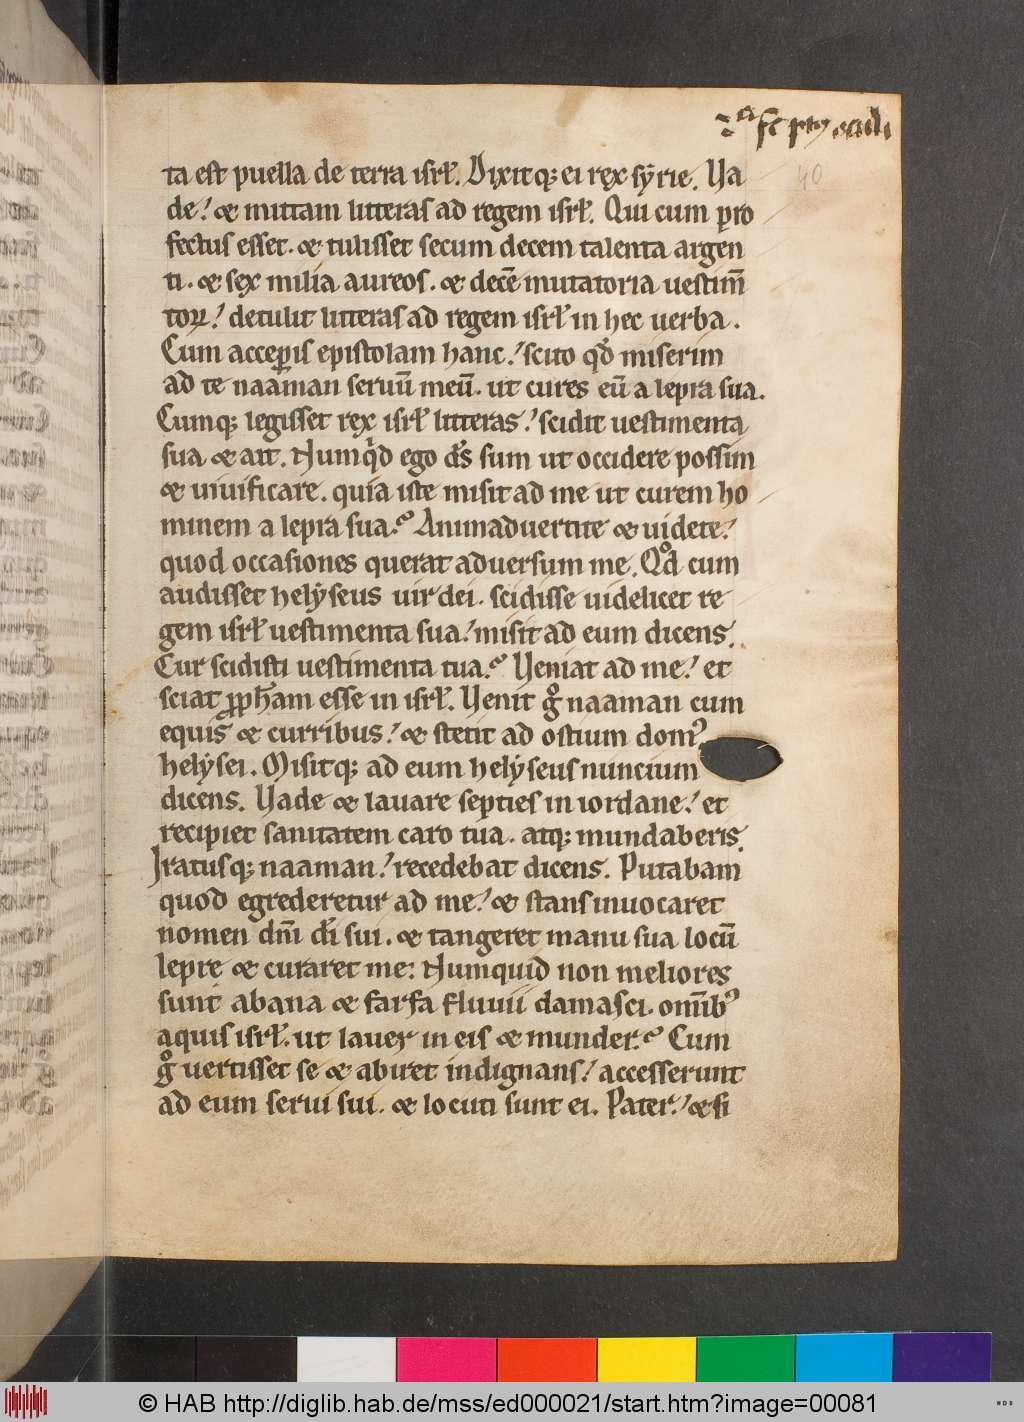 40
ta est puella de terra isrł. Dixitq; ei rex sẏrie. Va
de! & mittam litteras ad regem isrł. Qui cum pro
fectus esset. & tulisset secum decem talenta argen
ti. & sex milia aureos. & decē mutatoria uestim̄
toꝝ! detulit litteras ad regem isrł in hec uerba.
Cum acceꝑis epistolam hanc! scito qd̓ miserim
ad te naaman seruū meū. ut cures eū a lepra sua.
Cumq; legisset rex isrł litteras! scidit uestimenta
sua & ait. Numqͥd ego ds̄ sum ut occidere possim
& uiuificare. quia iste misit ad me ut curem ho
minem a lepra sua? Animaduertite & uidete!
quod occasiones querat aduersum me. Qͦd cum
audisset helẏseus uir dei. scidisse uidelicet re
gem isrł uestimenta sua! misit ad eum dicens.
Cur scidisti uestimenta tua? Veniat ad me! et
sciat ꝓpħam esse in isrł. Venit gͦ naaman cum
equis & curribus! & stetit ad ostium domꝰ
helẏsei. Misitq; ad eum helẏseus nuncium
dicens. Vade & lauare septies in iordane! et
recipiet sanitatem caro tua. atq; mundaberis.
Iratusq; naaman! recedebat dicens. Putabam
quod egrederetur ad me! & stans inuocaret
nomen dn̄i dī sui. & tangeret manu sua locū
lepre & curaret me: Numquid non meliores
sunt abana & farfa fluuii damasci. om̄ibꝰ
aquis isrł. ut lauer in eis & munder? Cum
gͦ uertisset se & abiret indignans! accesserunt
ad eum serui sui. & locuti sunt ei. Pater! & si
© HAB http://diglib.hab.de/mss/ed000021/start.htm?image=00081